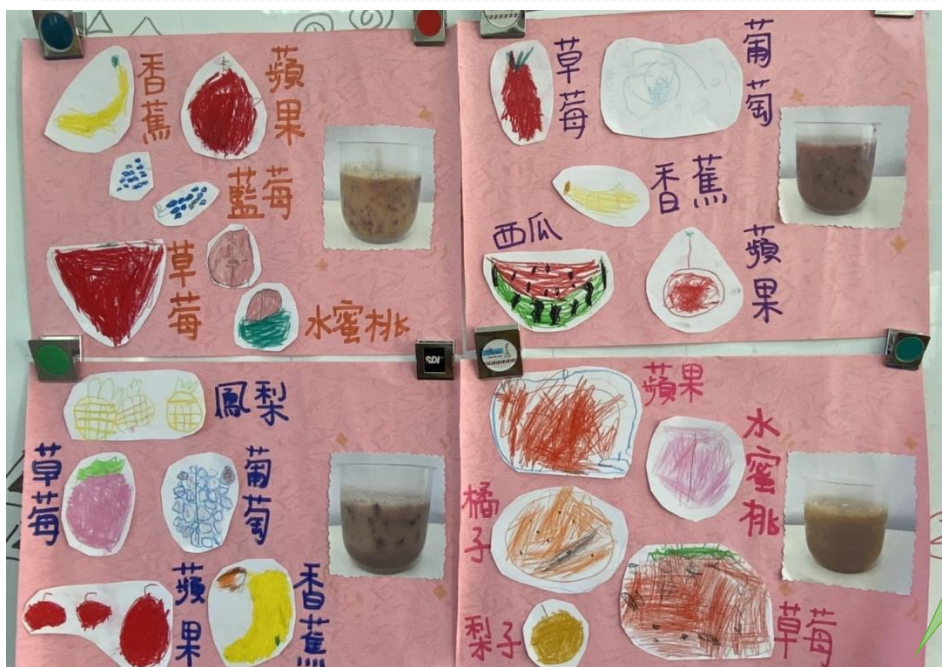 香蕉
蘋果
藍莓
草莓
水蜜桃
草莓
葡萄
香蕉
西瓜
蘋果
鳳梨
草莓
葡萄
蘋果
香蕉
蘋果
水蜜桃
橘子
梨子
草莓
SDI